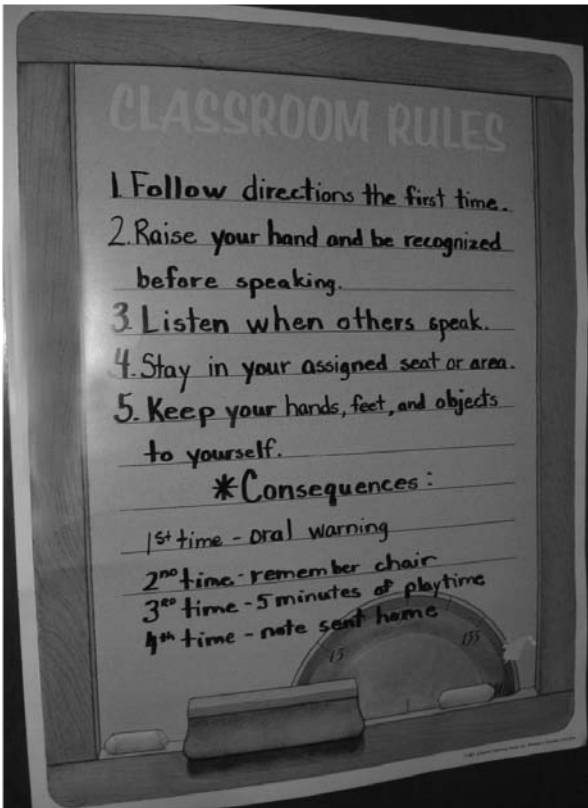 CLASSROOM RULES
1. Follow directions the first time.
2. Raise your hand and be recognized
before speaking.
3. Listen when others speak.
4. Stay in your assigned seat or area.
5. Keep your hands, feet, and objects
to yourself.
*Consequences:
1st time - oral warning
2nd time - remember chair
3rd time - 5 minutes of playtime
4th time - note sent home
15
155